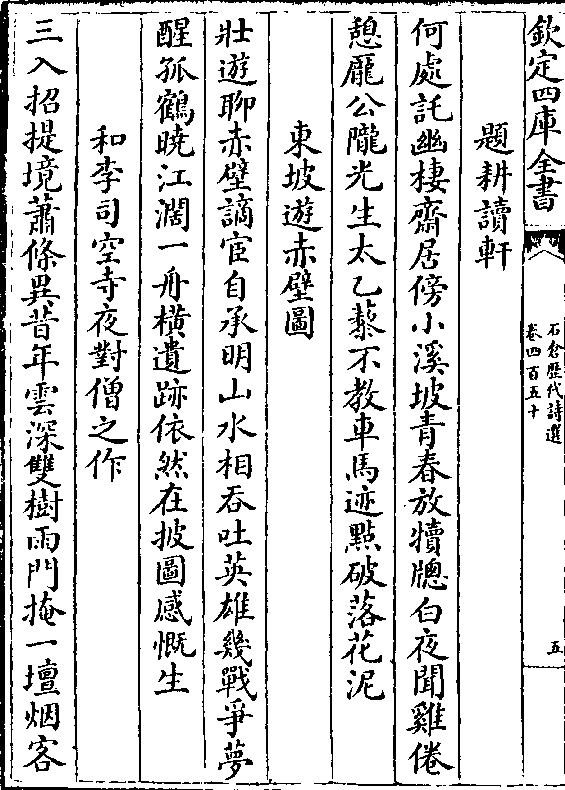 欽定四庫全書
石倉歷代詩選
卷四百五十
五
題耕讀軒
何處託幽棲齋居傍小溪坡青春放犢牕白夜聞雞倦
憩龐公隴光生太乙藜不教車馬迹點破落花泥
東坡遊赤壁圖
壯遊聊赤壁謫宦自承明山水相吞吐英雄幾戰爭夢
醒孤鶴曉江濶一舟橫遺跡依然在披圖感慨生
和李司空寺夜對僧之作
三入招提境蕭條異昔年雲深雙樹雨門掩一壇烟客